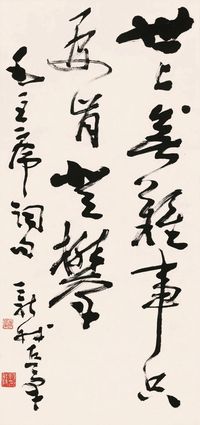 世上无难事只
要肯登攀
毛主席词句